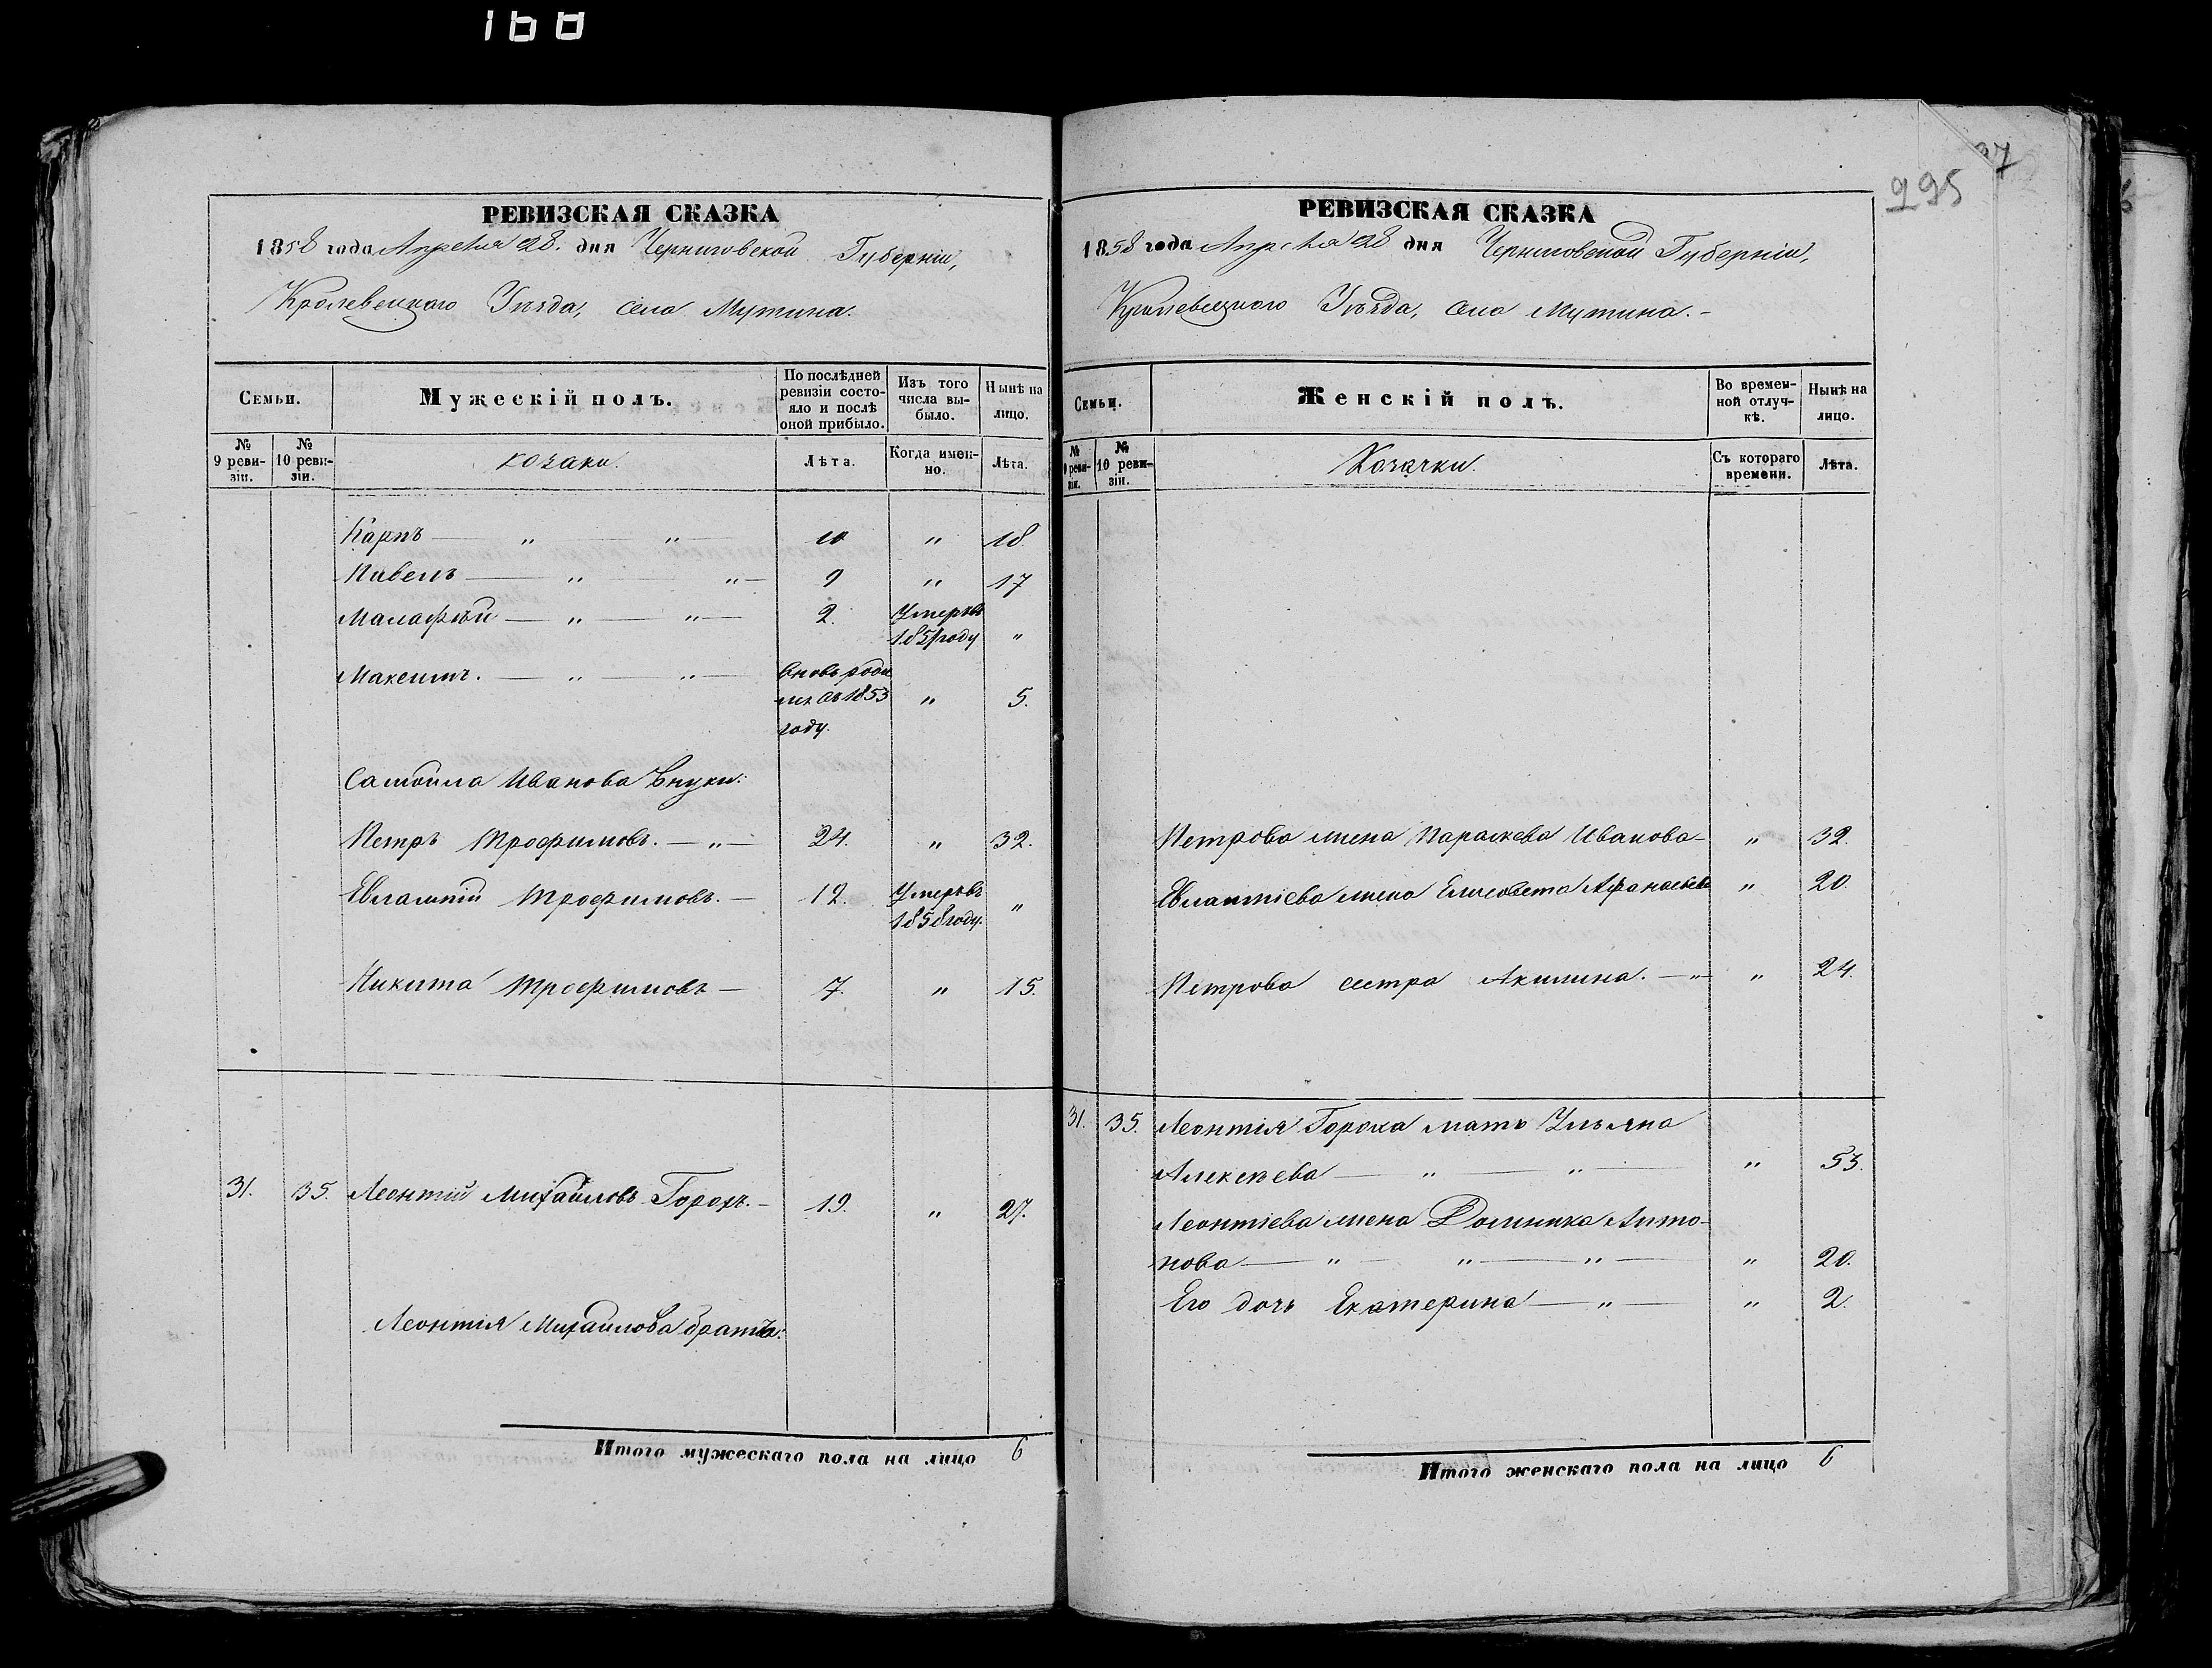 160
РЕВИЗСКАЯ СКАЗКА
1858 года Апреля 28. дня Черниговской Губерніи,
Кролевецкаго Уѣзда, села Мутина.
Семьи.
Мужескій полъ.
По послѣдней ревизіи состояло и послѣ оной прибыло.
Изъ того числа выбыло.
Нынѣ на лицо.
№ 9 ревизіи.
№ 10 ревизіи.
козаки.
Лѣта.
Когда именно.
Лѣта.
Карпъ — „ — „ — 10 „ 18
Павелъ — „ — „ — 9 „ 17
Малафѣй — „ — „ — 2. Умеръ въ
1851 году „
Максимъ. — „ — „ — вновь роди
лся въ 1853 „ 5.
году.
Самойла Иванова Внуки:
Петръ Трофимовъ. — „ — 24. „ 32.
Евлампій Трофимовъ. — 12. Умеръ въ „
1858 году.
Никита Трофимовъ — 7. „ 15.
31. 35. Леонтій Михайловъ Горохъ. — 19. „ 27.
Леонтія Михайлова братья:
Итого мужескаго пола на лицо 6
37
995
РЕВИЗСКАЯ СКАЗКА
1858 года Апреля 28 дня Черниговской Губерніи,
Кролевецкаго Уѣзда, села Мутина. -
Семьи.
Женскій полъ.
Во временной отлучкѣ.
Нынѣ на лицо.
№ 9 ревизіи.
№ 10 ревизіи.
Козачки.
Съ котораго времени.
Лѣта.
Петрова жена Параскева Иванова — „ 32.
Евлампіева жена Елисовета Афанасьева „ 20.
Петрова сестра Акилина. — „ — „ 24.
31. 35. Леонтія Гороха мать Ульяна
Алексѣева — „ — „ — „ 53.
Леонтіева жена Доминика Анто-
нова — „ — „ — „ — „ 20.
Его дочь Екатерина — „ — „ 2.
Итого женскаго пола на лицо 6